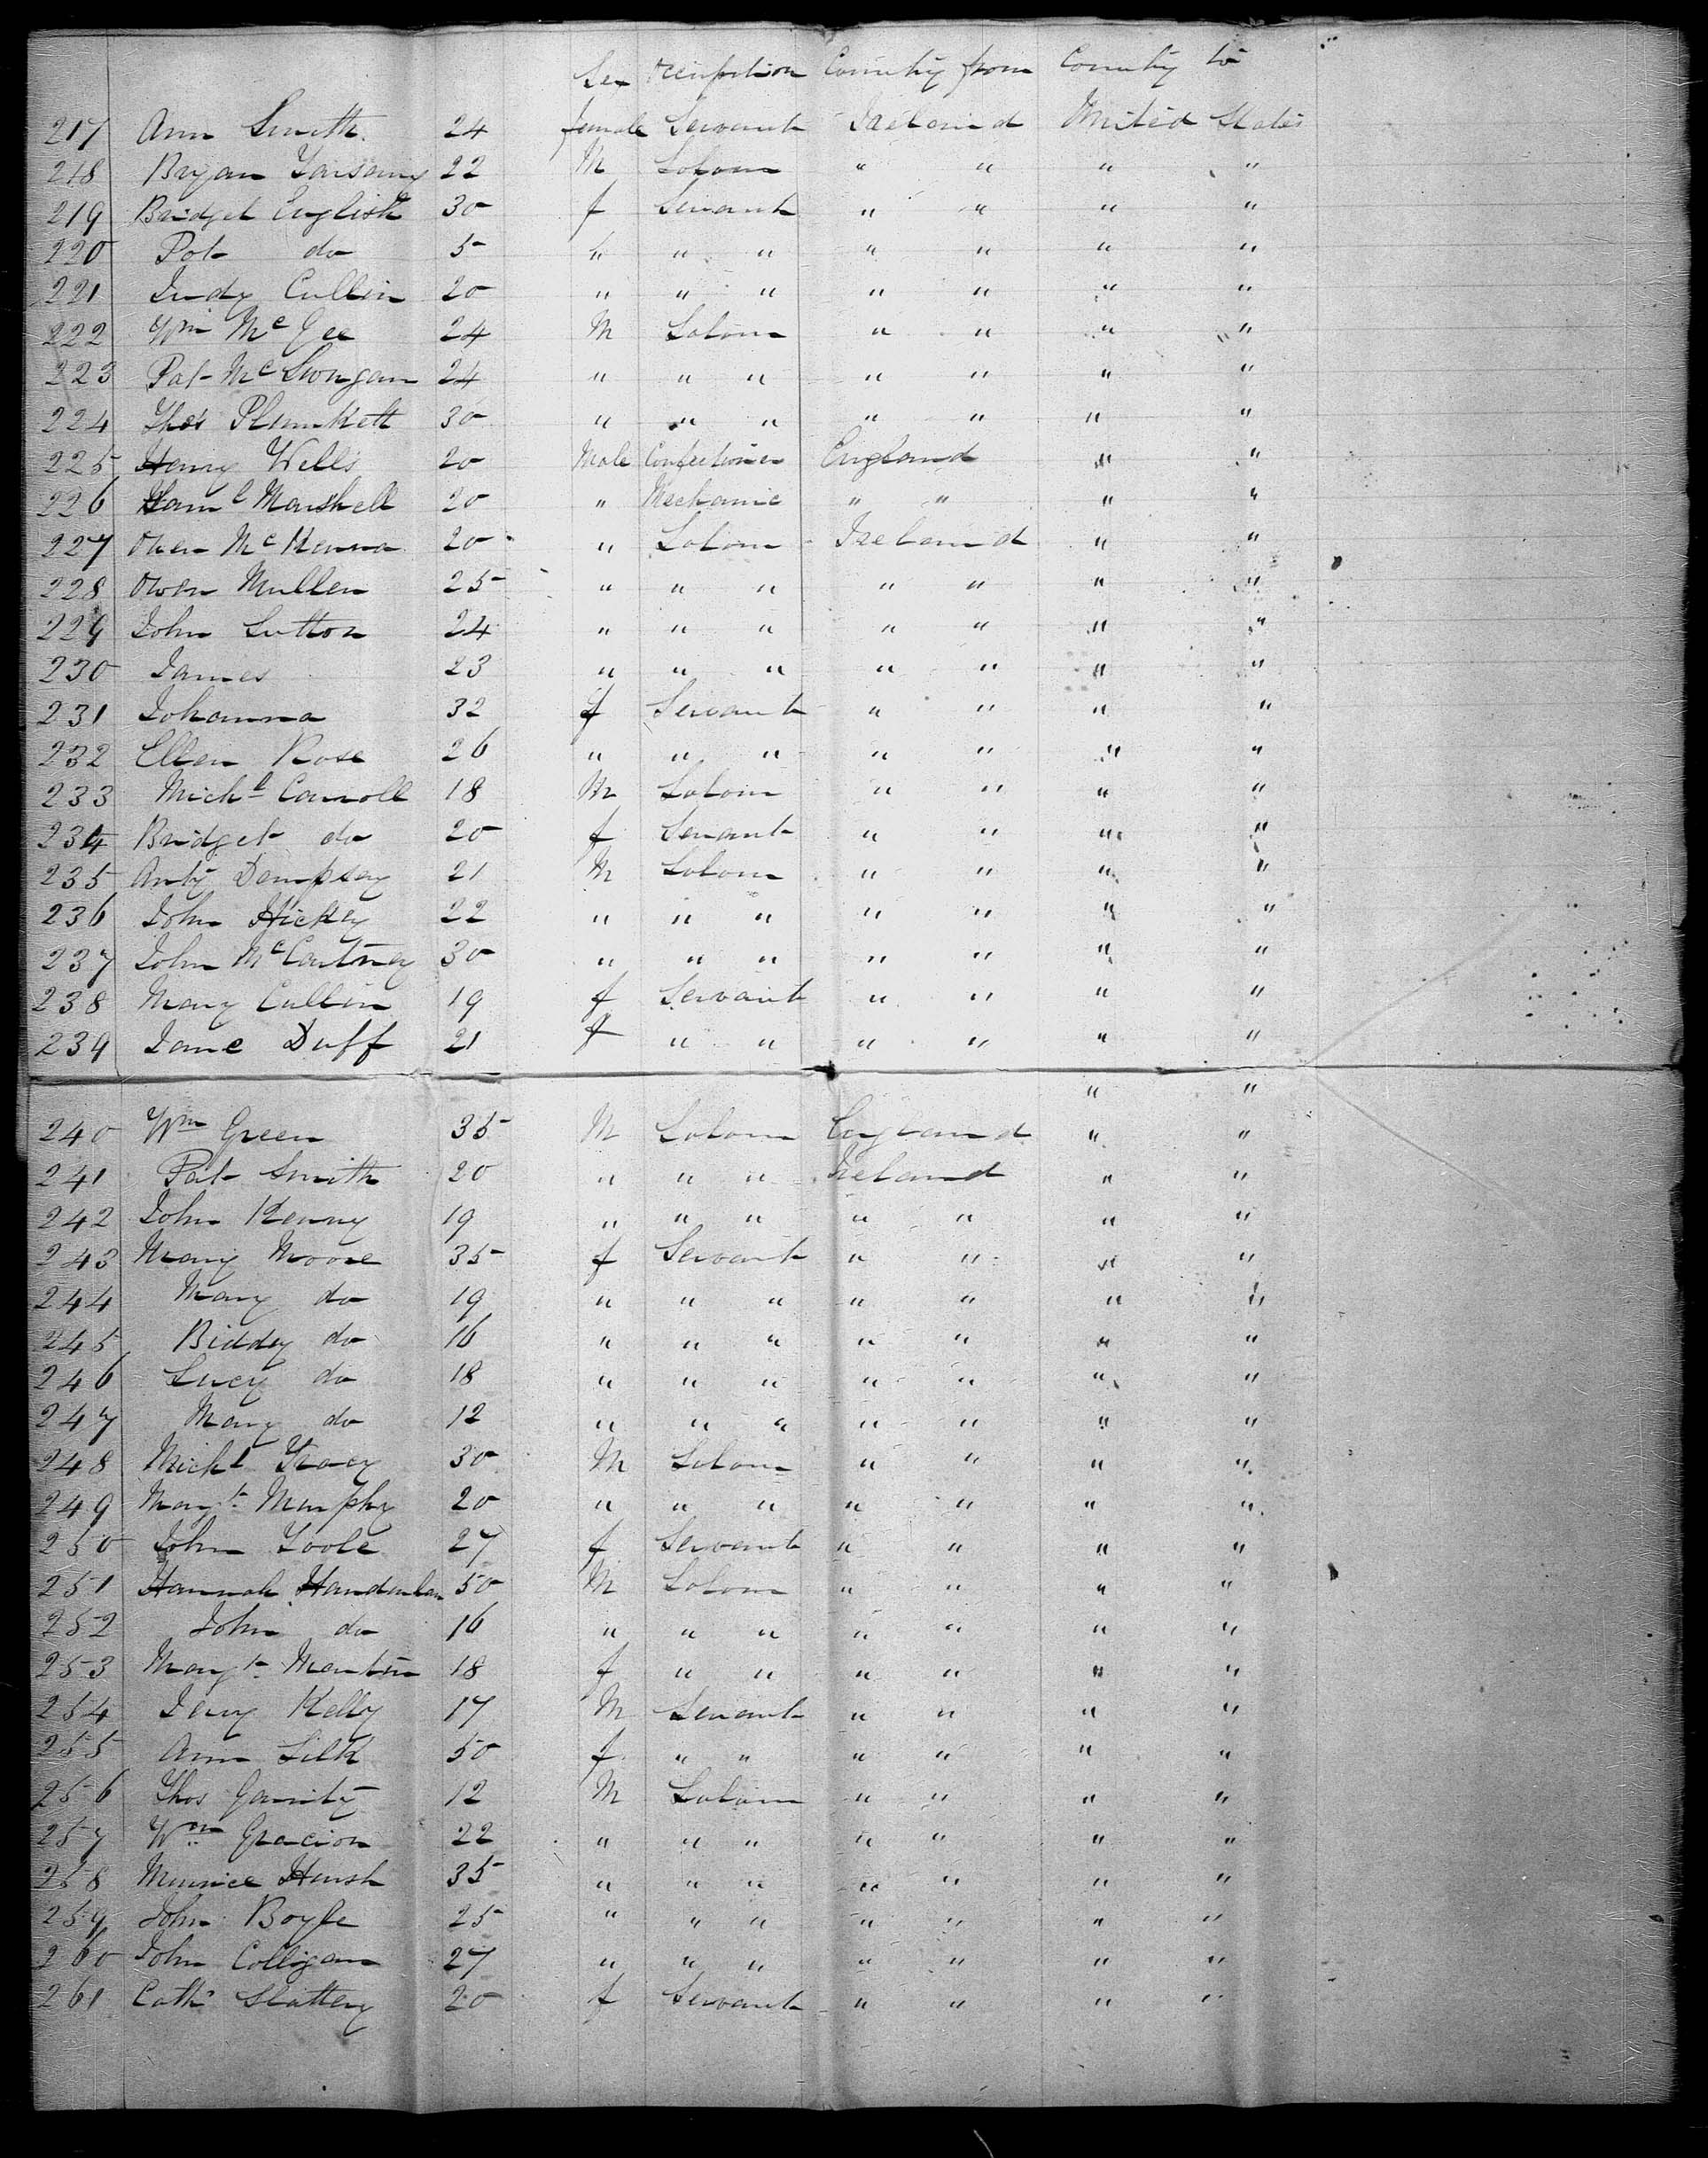 Sex Occupation Country from Country to
217 Ann Smith 24 female Servant Ireland United States
218 Bryan 22 M Labour " " " "
219 Bridget English 30 f Servant " " " "
220 Pat do 5 " " " " " " "
221 Judy Cullin 20 " " " " " " "
222 Wm McGee 24 M Labour " " " "
223 Pat 24 " " " " " " "
224 Thos Plunkett 30 " " " " " " "
225 Henry Wells 20 Male Confectioner England " "
226 Marshell 20 " Mechanic " " " "
227 Owen McKenna 20 " Labour Ireland " "
228 Owen Mullen 25 " " " " " " "
229 John Sutton 24 " " " " " " "
230 James 23 " " " " " " "
231 Johanna 32 f Servant " " " "
232 Ellen Rose 26 " " " " " " "
233 Michl Carroll 18 M Labour " " " "
234 Bridget do 20 f Servant " " " "
235 Anty Dempsey 21 M Labour " " " "
236 John Hickey 22 " " " " " " "
237 John McCartney 30 " " " " " " "
238 Mary Cullin 19 f Servant " " " "
239 Jane Duff 21 f " " " " " "
" "
240 Wm Green 35 M Labour England " "
241 Pat Smith 20 " " " Ireland " "
242 John Kenny 19 " " " " " " "
243 Mary Moore 35 f Servant " " " "
244 Mary do 19 " " " " " " "
245 Biddy do 16 " " " " " " "
246 Lucy do 18 " " " " " " "
247 Mary do 12 " " " " " " "
248 Michl Tracy 30 M Labour " " " "
249 Margt Murphy 20 " " " " " " "
250 John Toole 27 f Servant " " " "
251 Hannah 50 M Labour " " " "
252 John do 16 " " " " " " "
253 Margt Martin 18 f " " " " " "
254 Kelly 17 M Servant " " " "
255 Ann Silk 50 f " " " " " "
256 Thos Garrity 12 M Labour " " " "
257 Wm Gracion 22 " " " " " " "
258 Hursh 35 " " " " " " "
259 John Boyle 25 " " " " " " "
260 John Colligan 27 " " " " " " "
261 Cath Slattery 20 f Servant " " " "